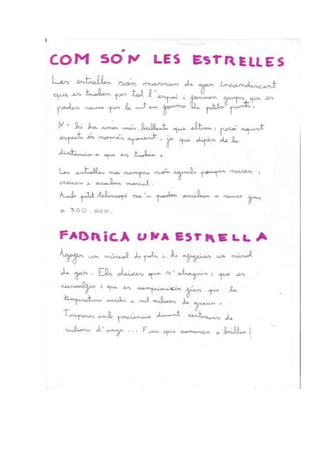 COM SÓN LES ESTRELLES
Les estrelles són masses de gas incandescent
que es troben per tot l'espai i formen grups que es
poden veure per la nit en forma de petits punts.
N'hi ha unes més brillants que altres, però aquest
aspecte és només aparent, ja que depèn de la
distància a que es troben.
Les estrelles no sempre són iguals perquè neixen,
creixen i acaben morint.
Amb petit telescopi se'n poden arribar a veure fins
a 300.000.
FABRICA UNA ESTRELLA
Agafes un núvol de pols i hi afegeixes un núvol
de gas. Els deixes que s'atreguin, que es
reescalfin i que es comprimeixin fins que la
temperatura arribi a mil milions de graus.
Temperes amb paciència durant centenars de
milions d'anys... Fins que comença a brillar!